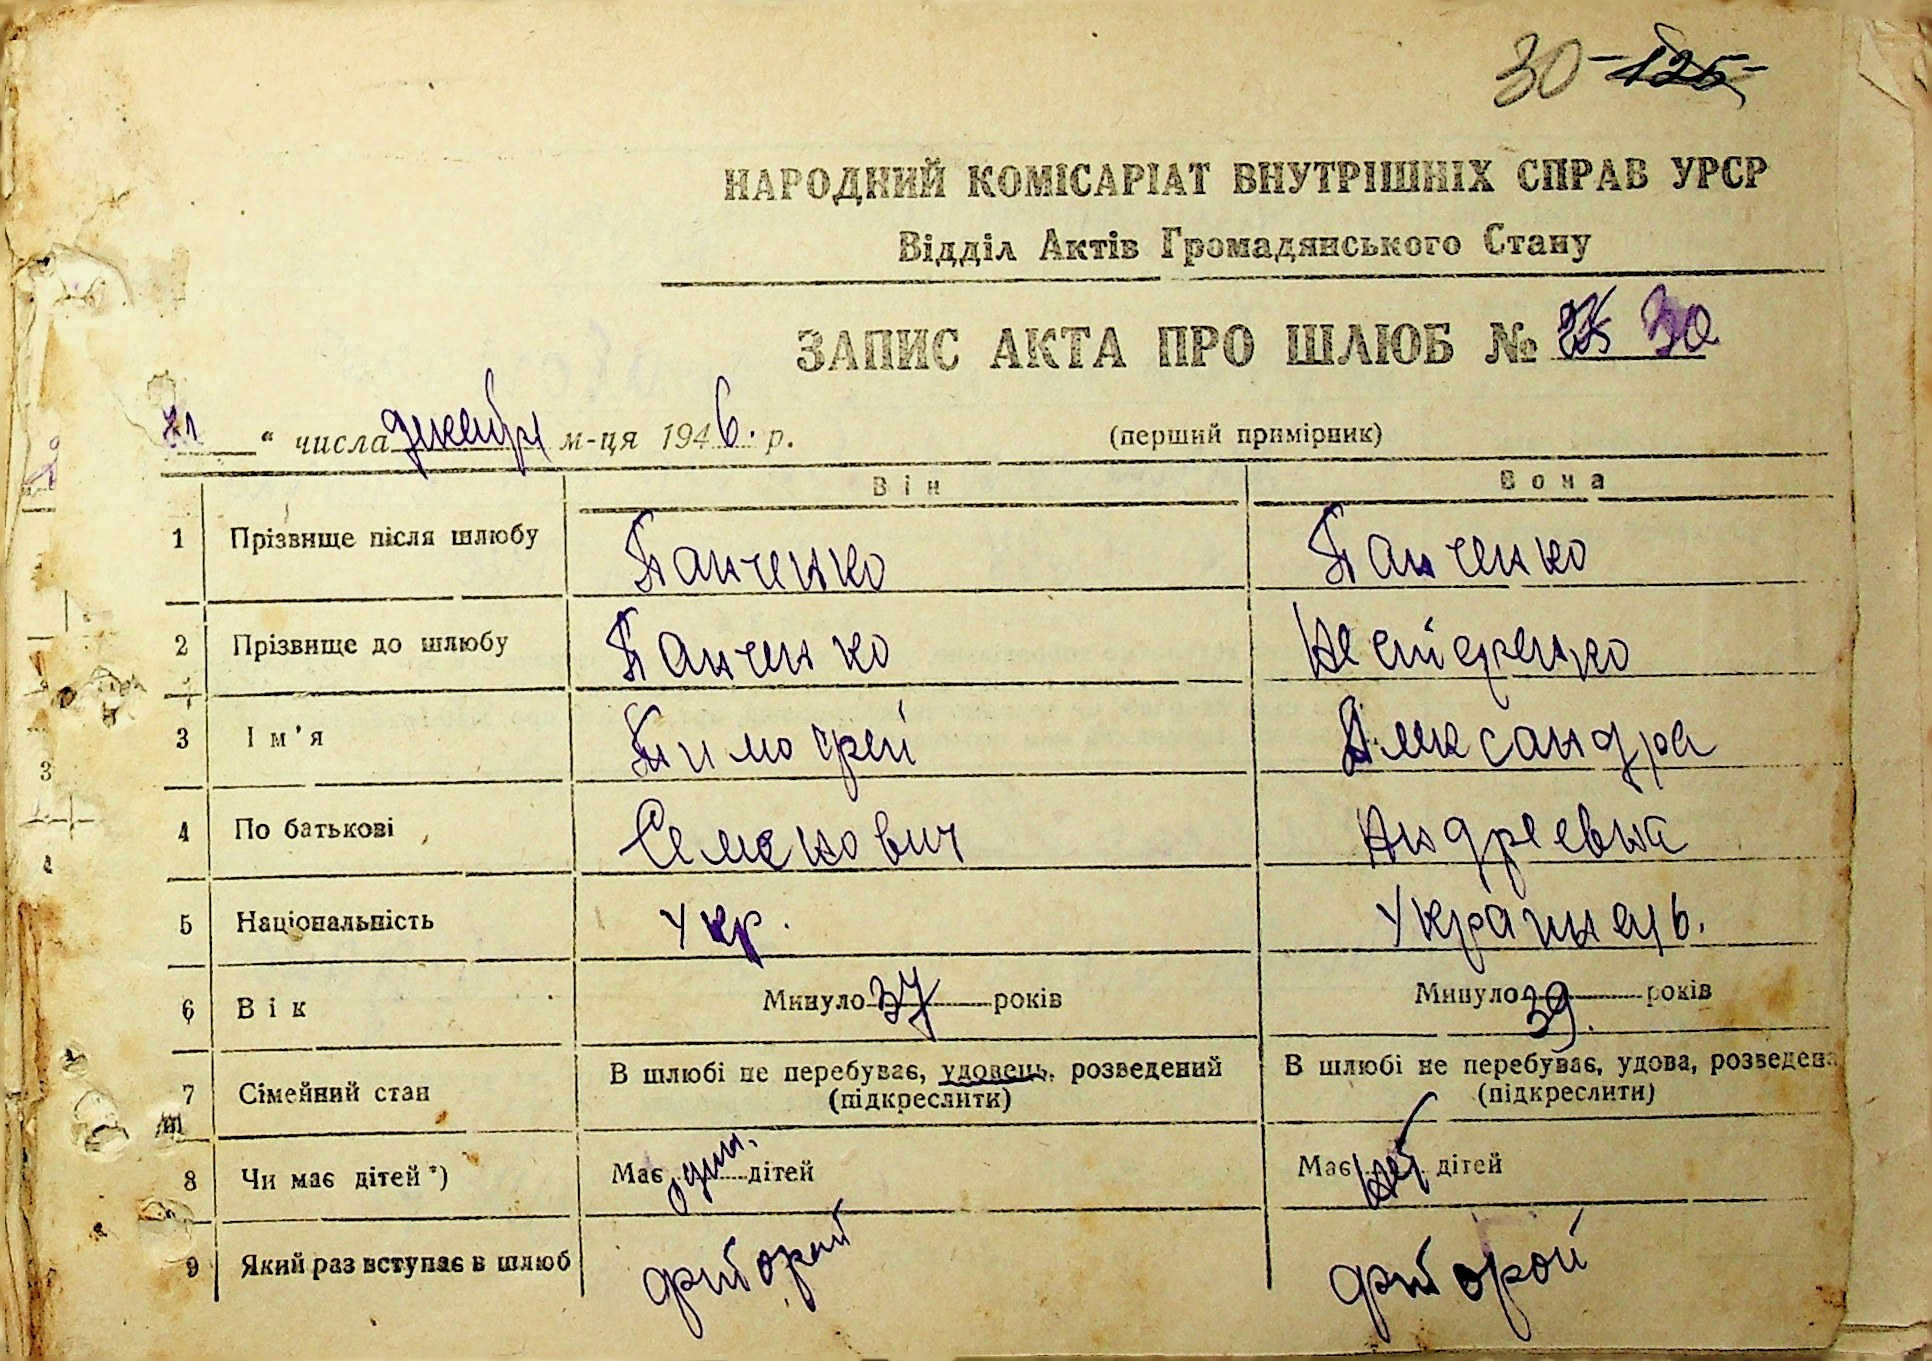 30 -125-
НАРОДНИЙ КОМІСАРІАТ ВНУТРІШНІХ СПРАВ УРСР
Відділ Актів Громадянського Стану
ЗАПИС АКТА ПРО ШЛЮБ № 30
" числа декабря м-ця 1946. р. (перший примірник)
Він Вона
1 Прізвище після шлюбу Панченко Панченко
2 Прізвище до шлюбу Панченко Нестеренко
3 Ім'я Тимофей Александра
4 По батькові Семенович Андреевна
5 Національність Укр. Украинець.
6 Вік Минуло 37 років Минуло 39. років
7 Сімейний стан В шлюбі не перебуває, удовець, розведений (підкреслити) В шлюбі не перебуває, удова, розведена (підкреслити)
8 Чи має дітей *) Має один. дітей Має нет дітей
9 Який раз вступає в шлюб